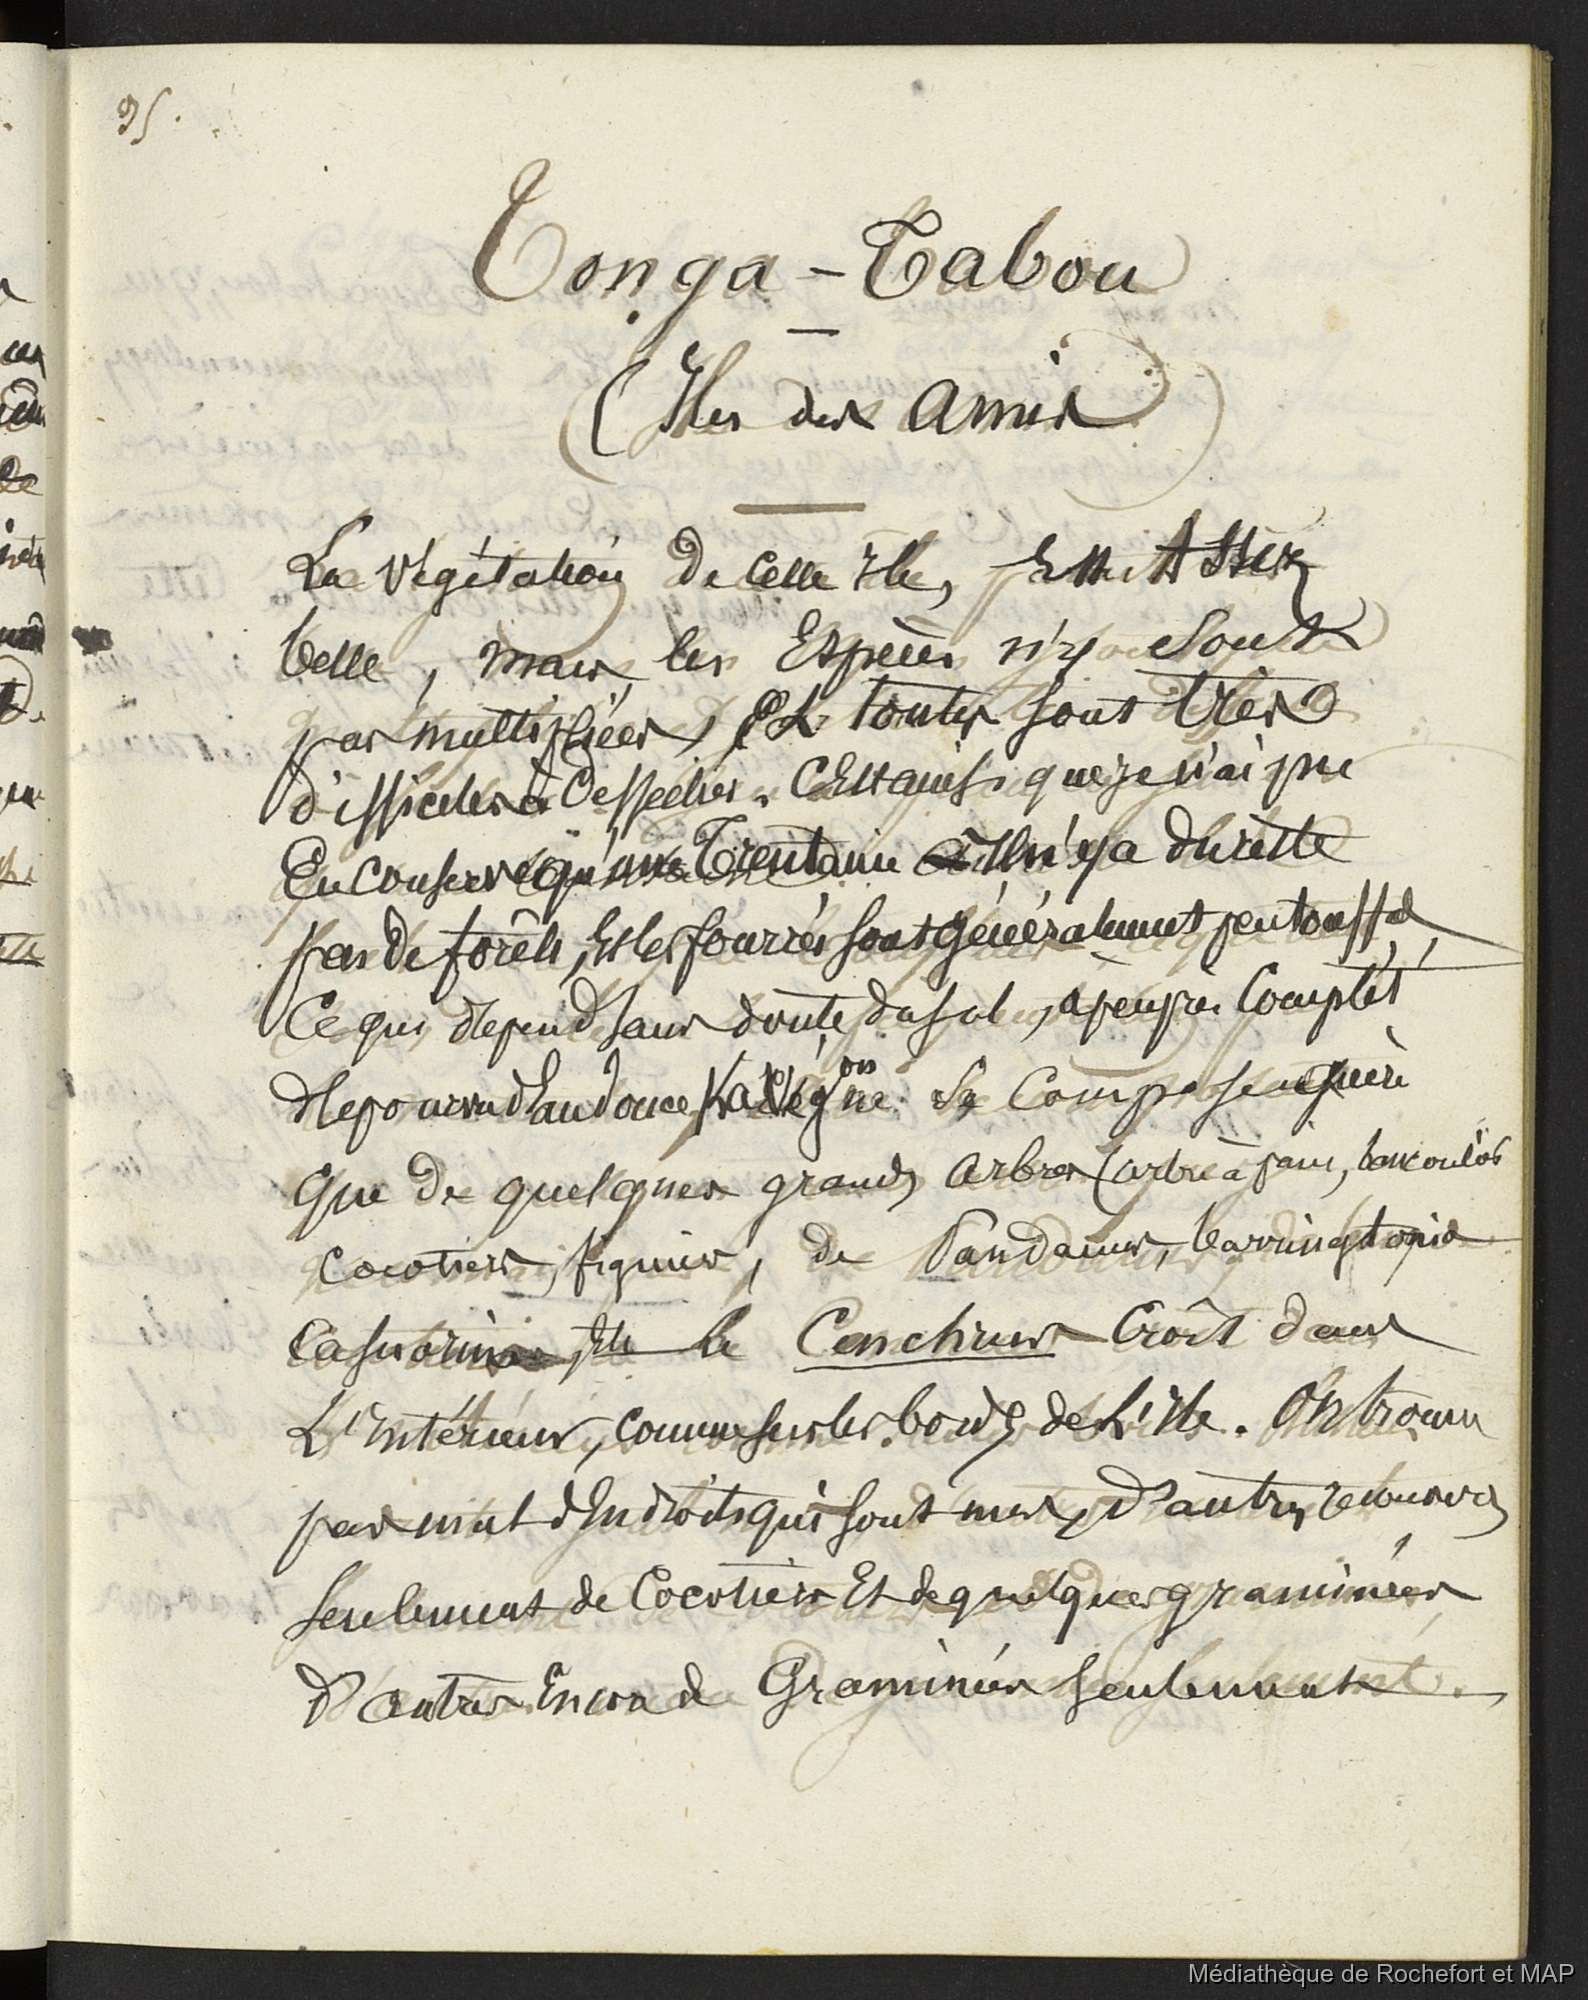 95.
Tonga-Tabou
(Iles des Amis)
La végétation de cette Ile, Est Assez
belle, mais les Espèces n'y sont
pas multipliées, Et toutes sont très
difficiles à Dessecher. C'Est ainsi que je n'ai pu
En conserver qu'une Trentaine Il n'y a du reste
pas de forêts, Et les fourrés sont généralement peu touffus,
Ce qui dépend sans doute du sol, à peu près complèt
dépourvu d'Eau douce, La végon ne se compose guère
que de quelques grands Arbres (arbre à pain, bancoulos
cocotiers, figuiers, de Pandanus, barringtonia
casuarina, Etc le Cenchrus croît dans
L'intérieur, comme sur les bords de L'Ile. On trouve
par mal d'Endroits qui sont nus, d'autres recouverts
seulement de Cocotiers Et de quelques graminées
D'autres Encore de Graminées seulement.
Médiathèque de Rochefort et MAP